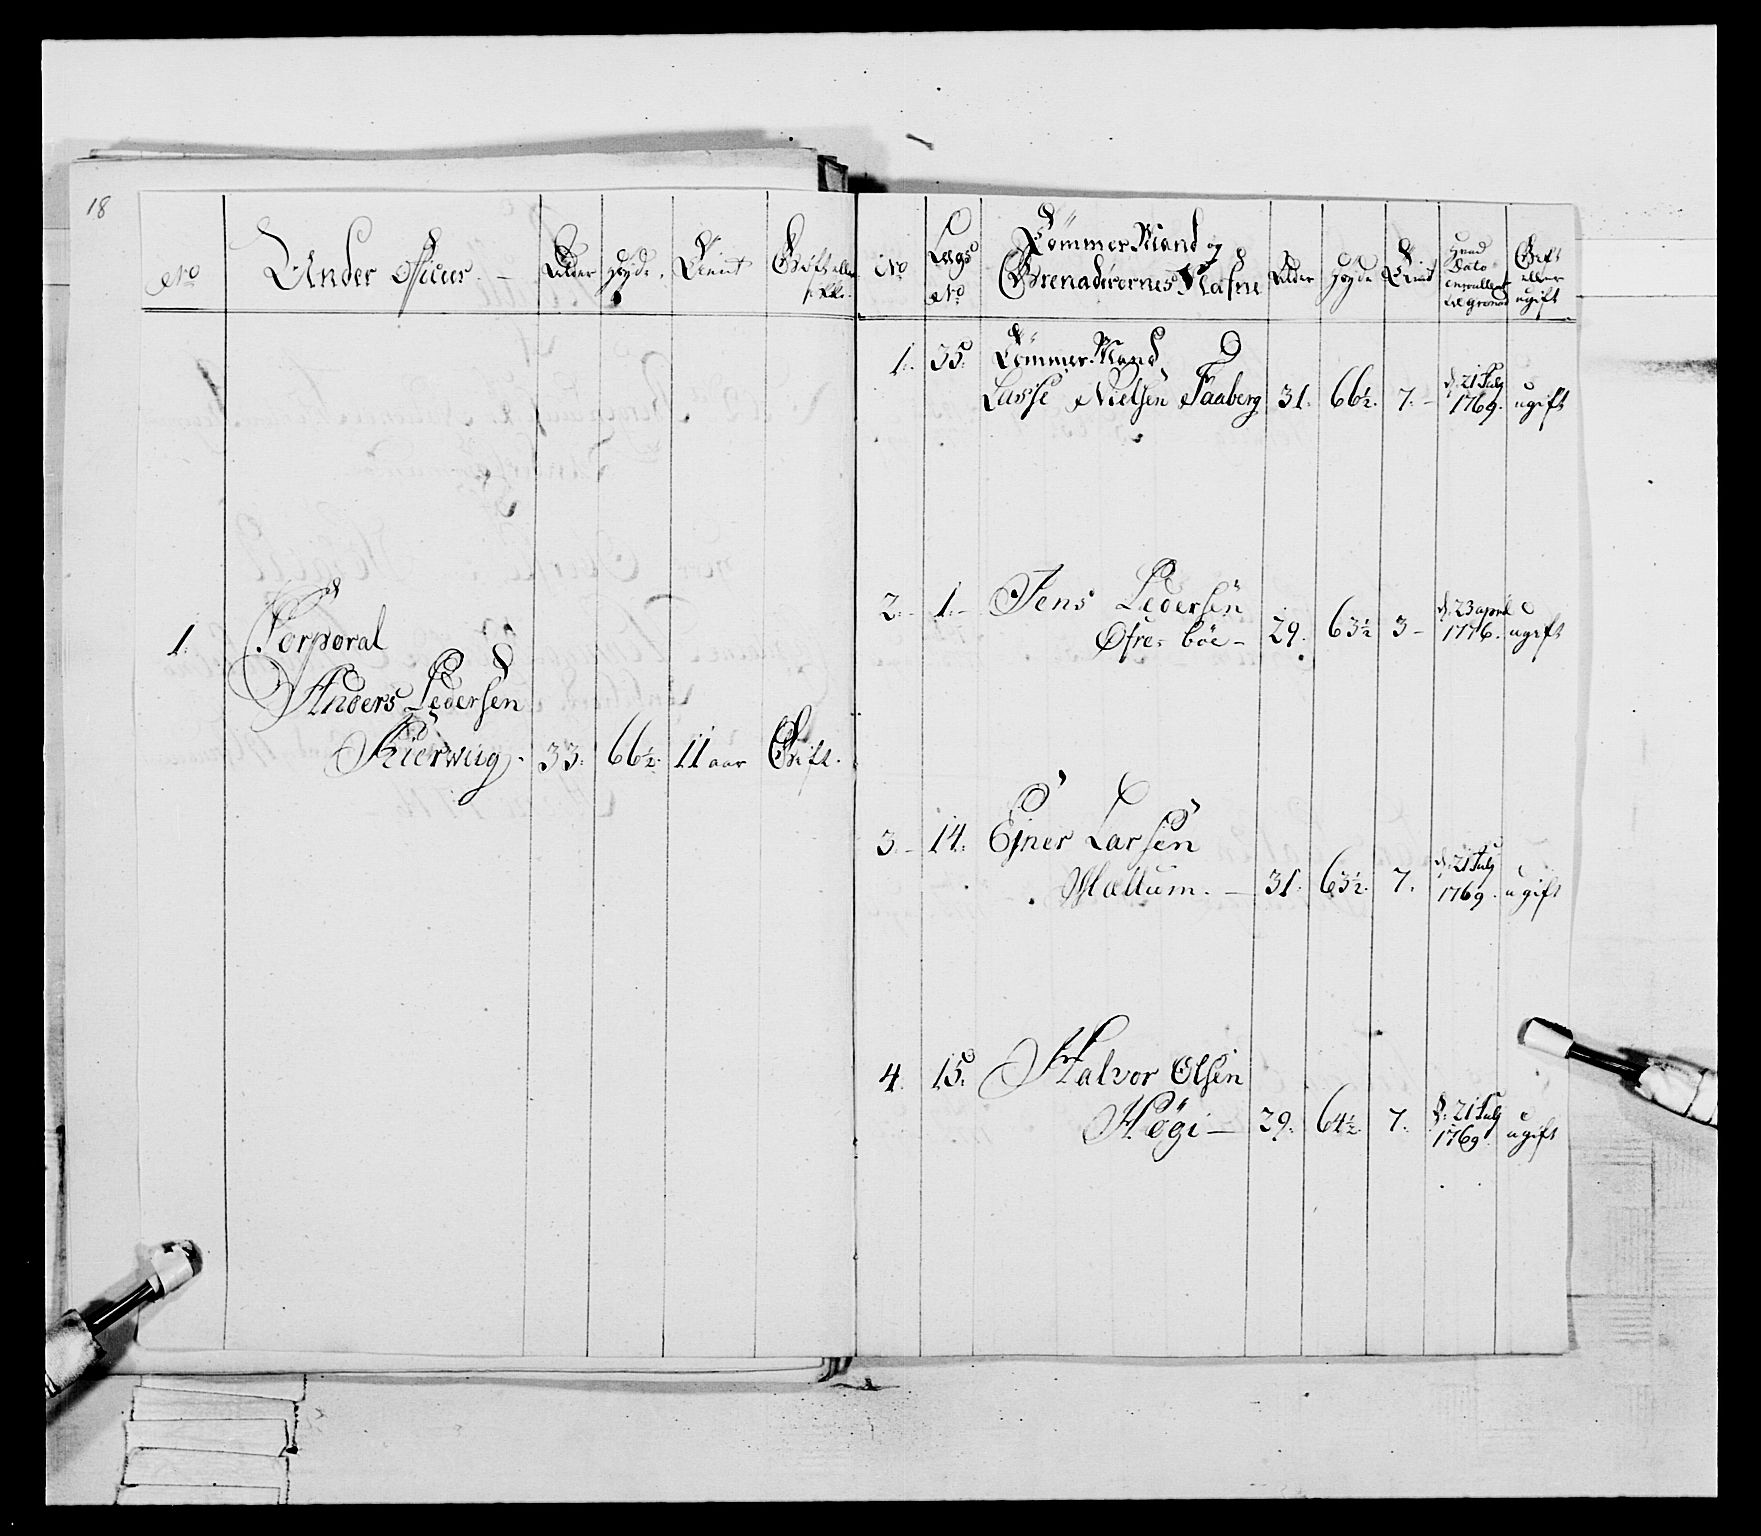 18
No
Under Officeer. —
Alder
Høyde.
Tient
Gift eller
ikke.
1.
Corporal
Anders Pedersen
Kierwug.
33.
66½.
11 aar
Gift.
No
Legs
No
Tömmer Mand og
Grenaderernes Nafne
Alder
Høyde
Tient
Hvad
Dato
enroullert
til grenad
Gift
eller
ugift
1.
35.
Tömmer Mand
Lasse Nielsen Faaberg
31.
66½.
7. –
d. 21 July
1769.
ugift
2. –
1. –
Jens Pedersen
Øfre= böe –
29.
63½
3 –
d. 23 april
1776.
ugift
3. –
14.
Ejner Larsen
Mællum. –
31.
63½.
7.
d. 21 July
1769.
ugift
4.
15.
Halvor Olsen
Høgi –
29.
64½.
7.
d. 21 July
1769.
ugift